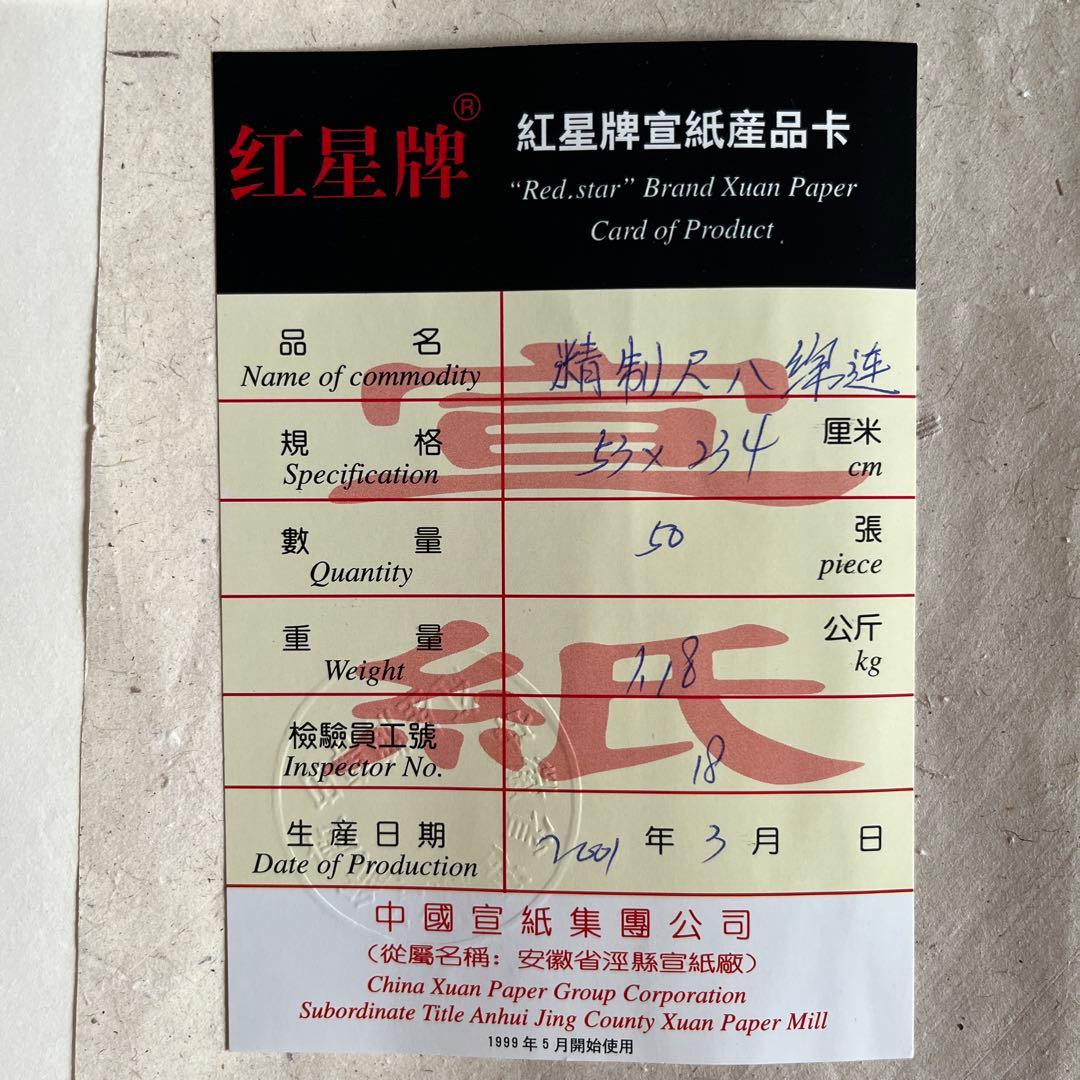 红星牌®
紅星牌宣紙産品卡
“Red.star” Brand Xuan Paper
Card of Product
品 名
Name of commodity
精制尺八绵连
規 格
Specification
53×234
厘米
cm
數 量
Quantity
50
張
piece
重 量
Weight
1.18
公斤
kg
檢驗員工號
Inspector No.
18
生産日期
Date of Production
2001 年 3 月 日
宣紙
中國宣紙集團公司
（從屬名稱：安徽省涇縣宣紙廠）
China Xuan Paper Group Corporation
Subordinate Title Anhui Jing County Xuan Paper Mill
1999年5月開始使用